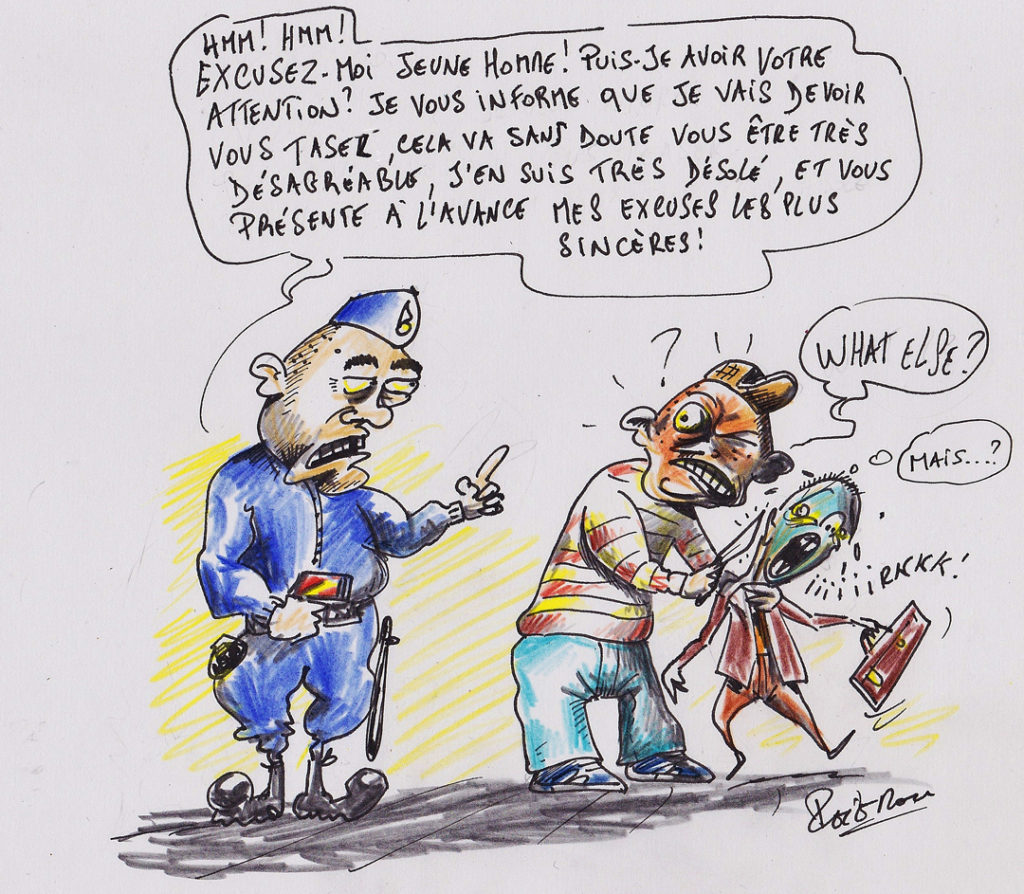 HMM! HMM!
EXCUSEZ-MOI JEUNE HOMME! PUIS-JE AVOIR VOTRE
ATTENTION? JE VOUS INFORME QUE JE VAIS DEVOIR
VOUS TASER, CELA VA SANS DOUTE VOUS ÊTRE TRÈS
DÉSAGRÉABLE, J'EN SUIS TRÈS DÉSOLÉ, ET VOUS
PRÉSENTE À L'AVANCE MES EXCUSES LES PLUS
SINCÈRES!
?
WHAT ELSE?
MAIS....?
iiiiiiRKKK!